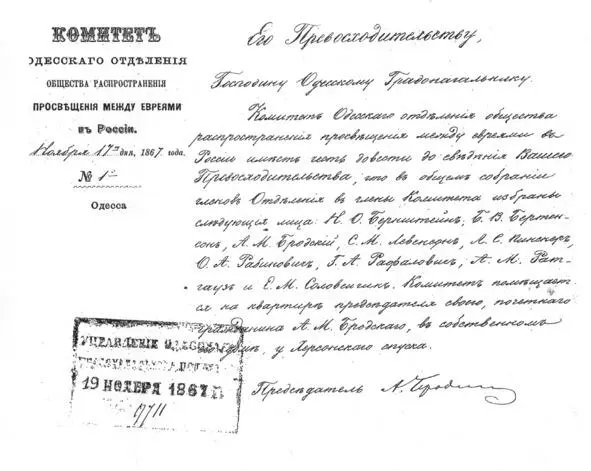 КОМИТЕТЪ
ОДЕССКАГО ОТДѢЛЕНІЯ
ОБЩЕСТВА РАСПРОСТРАНЕНІЯ
ПРОСВѢЩЕНІЯ МЕЖДУ ЕВРЕЯМИ
въ Россіи.
Ноября 17 дня, 1867 года.
№ 1
Одесса
Его Превосходительству,
Господину Одесскому Градоначальнику.
Комитетъ Одесскаго отдѣленія общества
распространенія просвѣщенія между евреями въ
Россіи имѣетъ честь довести до свѣдѣнія Вашего
Превосходительства, что въ общемъ собраніи
членовъ Отдѣленія въ члены Комитета избраны
слѣдующія лица: Н. О. Бернштейнъ, Б. В. Бертен-
сонъ, А. М. Бродскій, С. М. Левенсонъ, Л. С. Пинскеръ,
О. А. Рабиновичъ, Г. А. Рафаловичъ, А. М.
и Е. М. Соловейчикъ. Комитетъ помѣщает-
ся на квартирѣ предсѣдателя своего, почетнаго
гражданина А. М. Бродскаго, въ собственномъ
домѣ, у Херсонскаго спуска.
Предсѣдатель А. Бродскій
УПРАВЛЕНІЕ ОДЕССКАГО
19 НОЯБРЯ 1867
9711